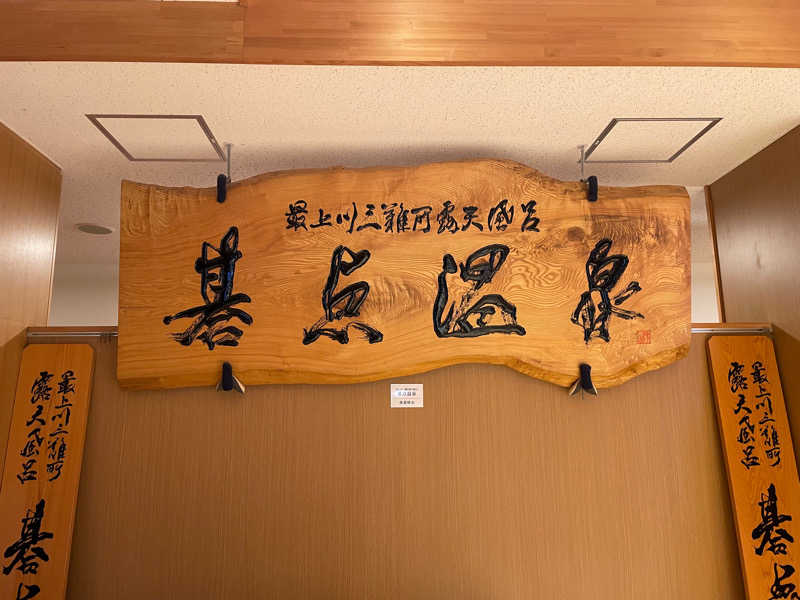 最上川三難所露天風呂
碁点温泉
最上川三難所
露天風呂
碁点
最上川三難所
露天風呂
碁点